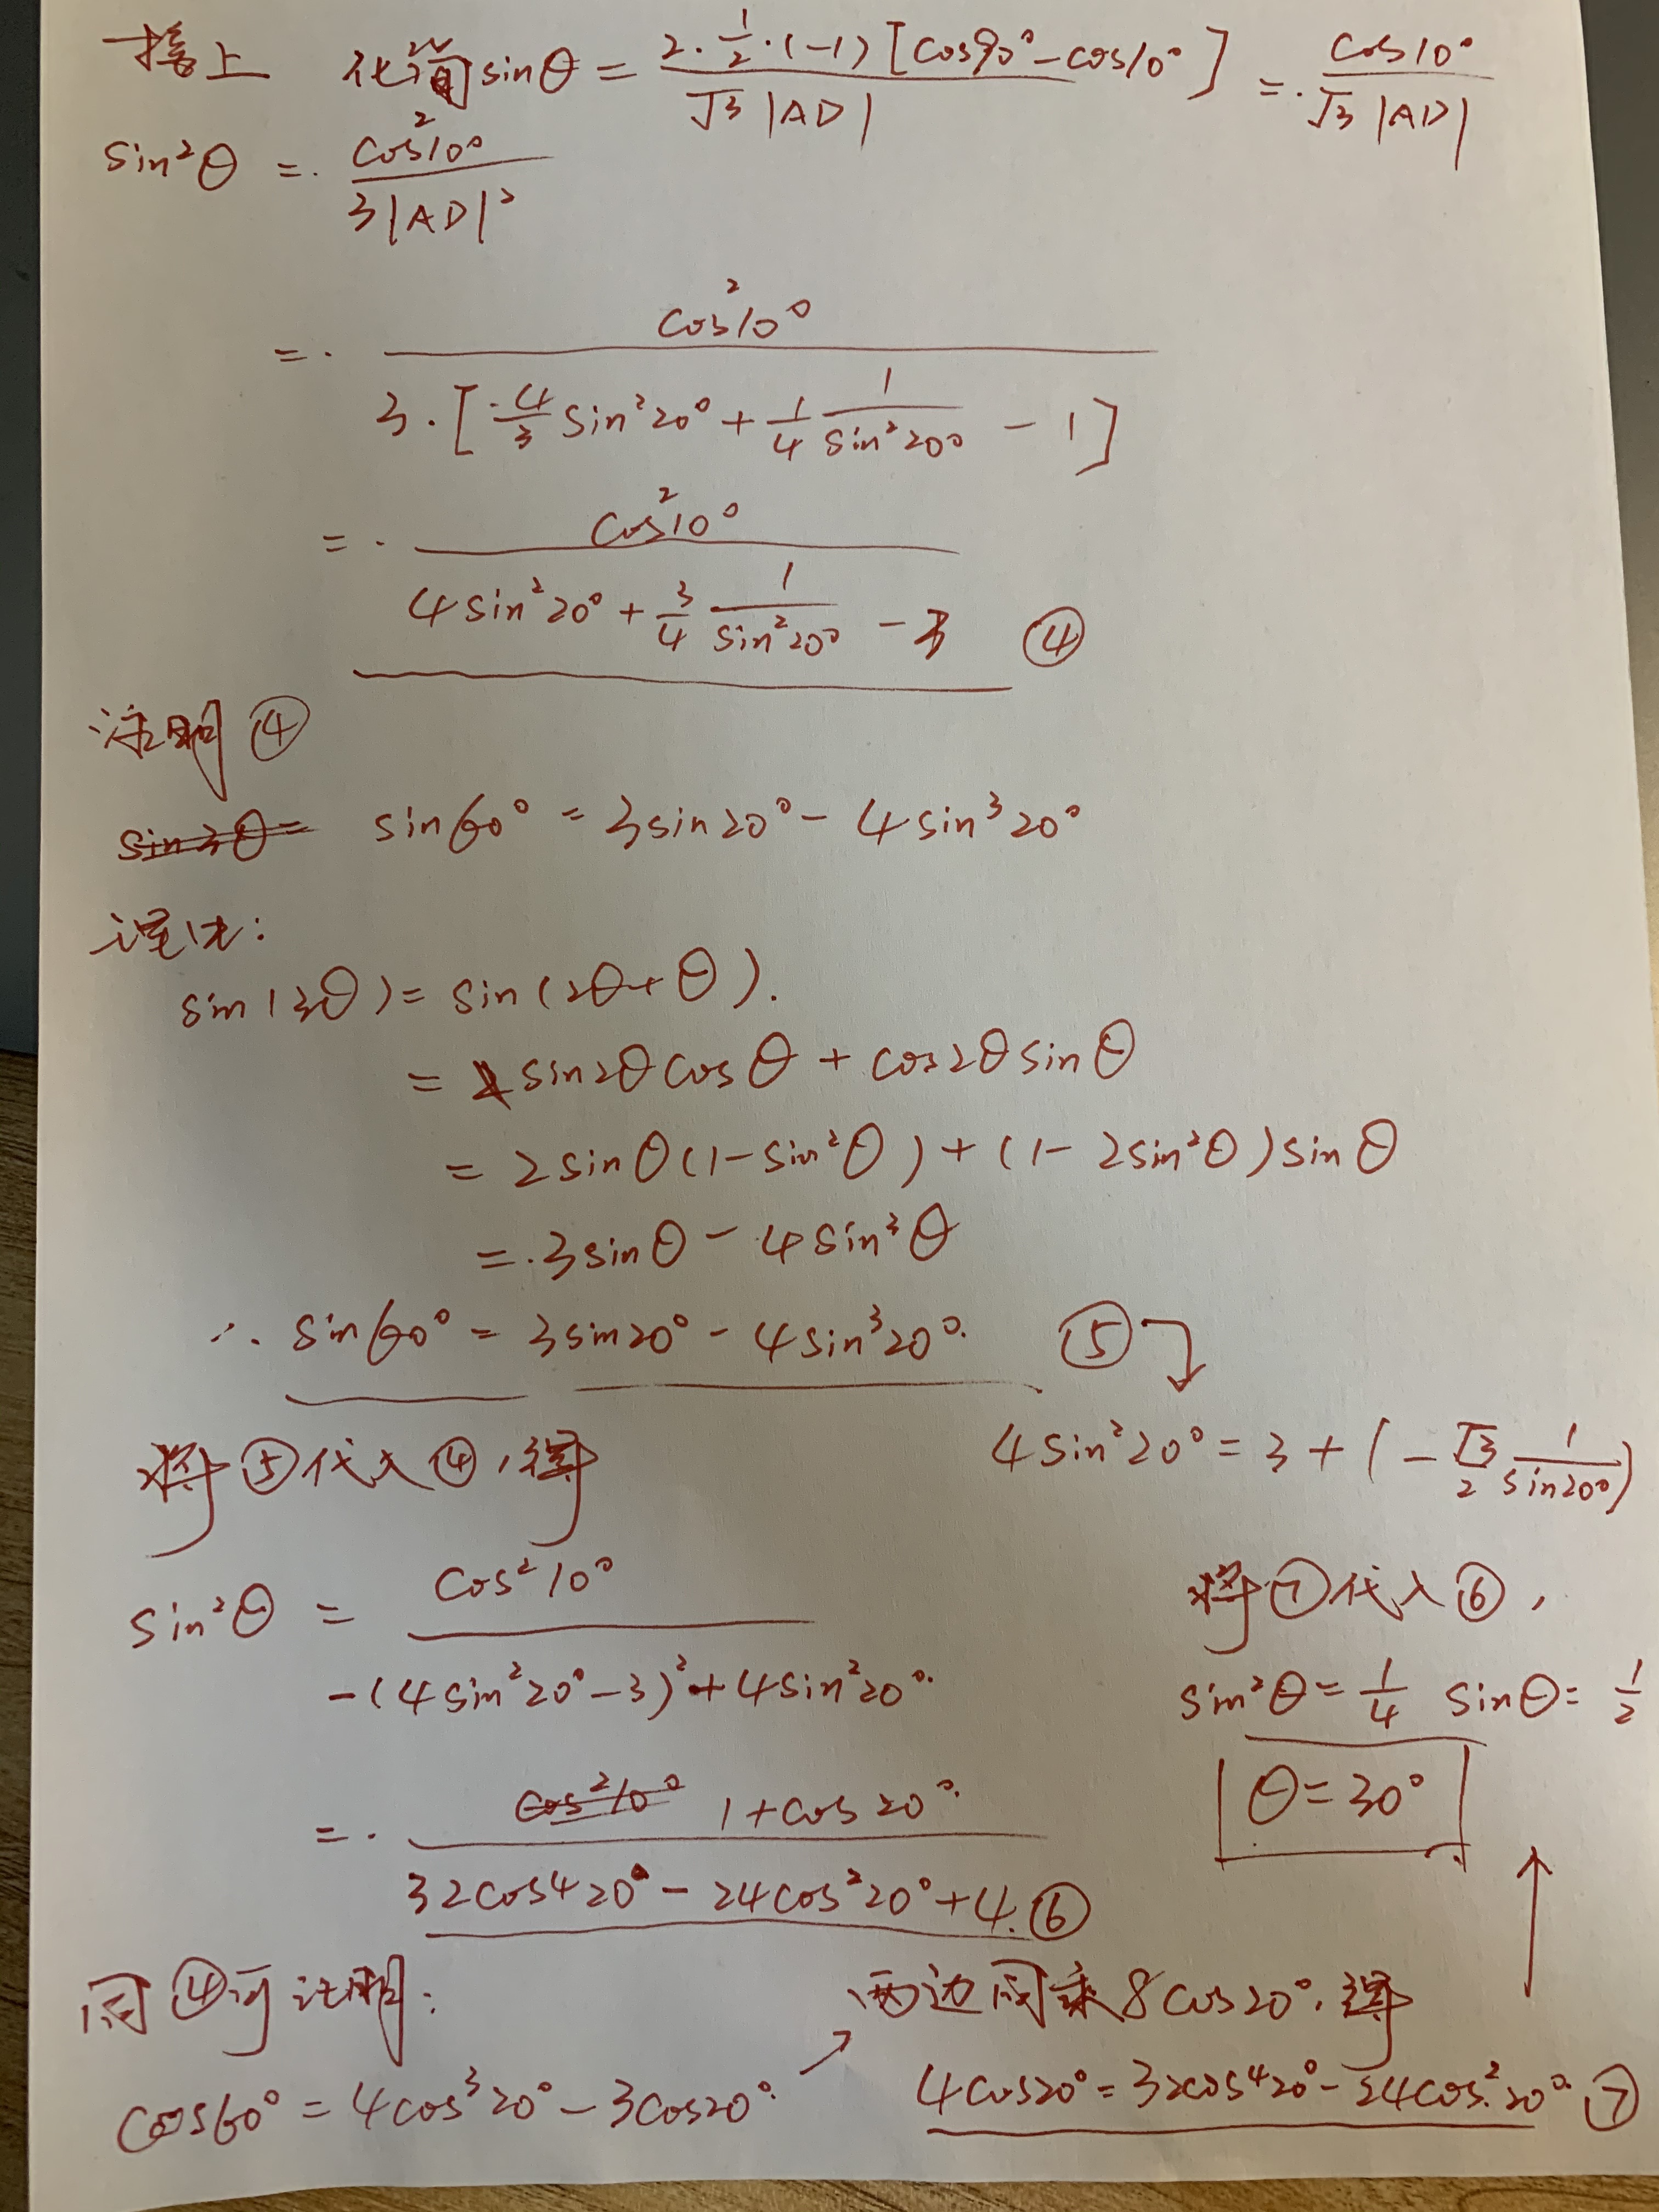 接上 化简 sinθ = 2·1/2·(-1)[cos90°-cos10°] / √3|AD| =. cos10° / √3|AD|
sin²θ =. cos²10° / 3|AD|²
=. cos²10° / 3·[4/3 sin²20° + 1/4 1/sin²20° - 1]
=. cos²10° / 4sin²20° + 3/4 1/sin²20° - 3 ④
注明④
sin3θ= sin60° = 3sin20° - 4sin³20°
证明:
sin(3θ) = sin(2θ+θ).
= sin2θcosθ + cos2θsinθ
= 2sinθ(1-sin²θ) + (1-2sin²θ)sinθ
=.3sinθ - 4sin³θ
∴ sin60° = 3sin20° - 4sin³20°. ⑤
4sin²20° = 3 + (-√3/2 1/sin20°)
将⑤代入④,得
sin²θ = cos²10° / -(4sin²20°-3)²+4sin²20°.
=. cos²10° 1+cos20°. / 32cos⁴20° - 24cos²20° + 4. ⑥
同④可证明:
cos60° = 4cos³20° - 3cos20°.
两边同乘8cos20°.得
4cos20° = 32cos⁴20° - 24cos²20°. ⑦
将⑦代入⑥,
sin²θ = 1/4 sinθ = 1/2
θ=30°